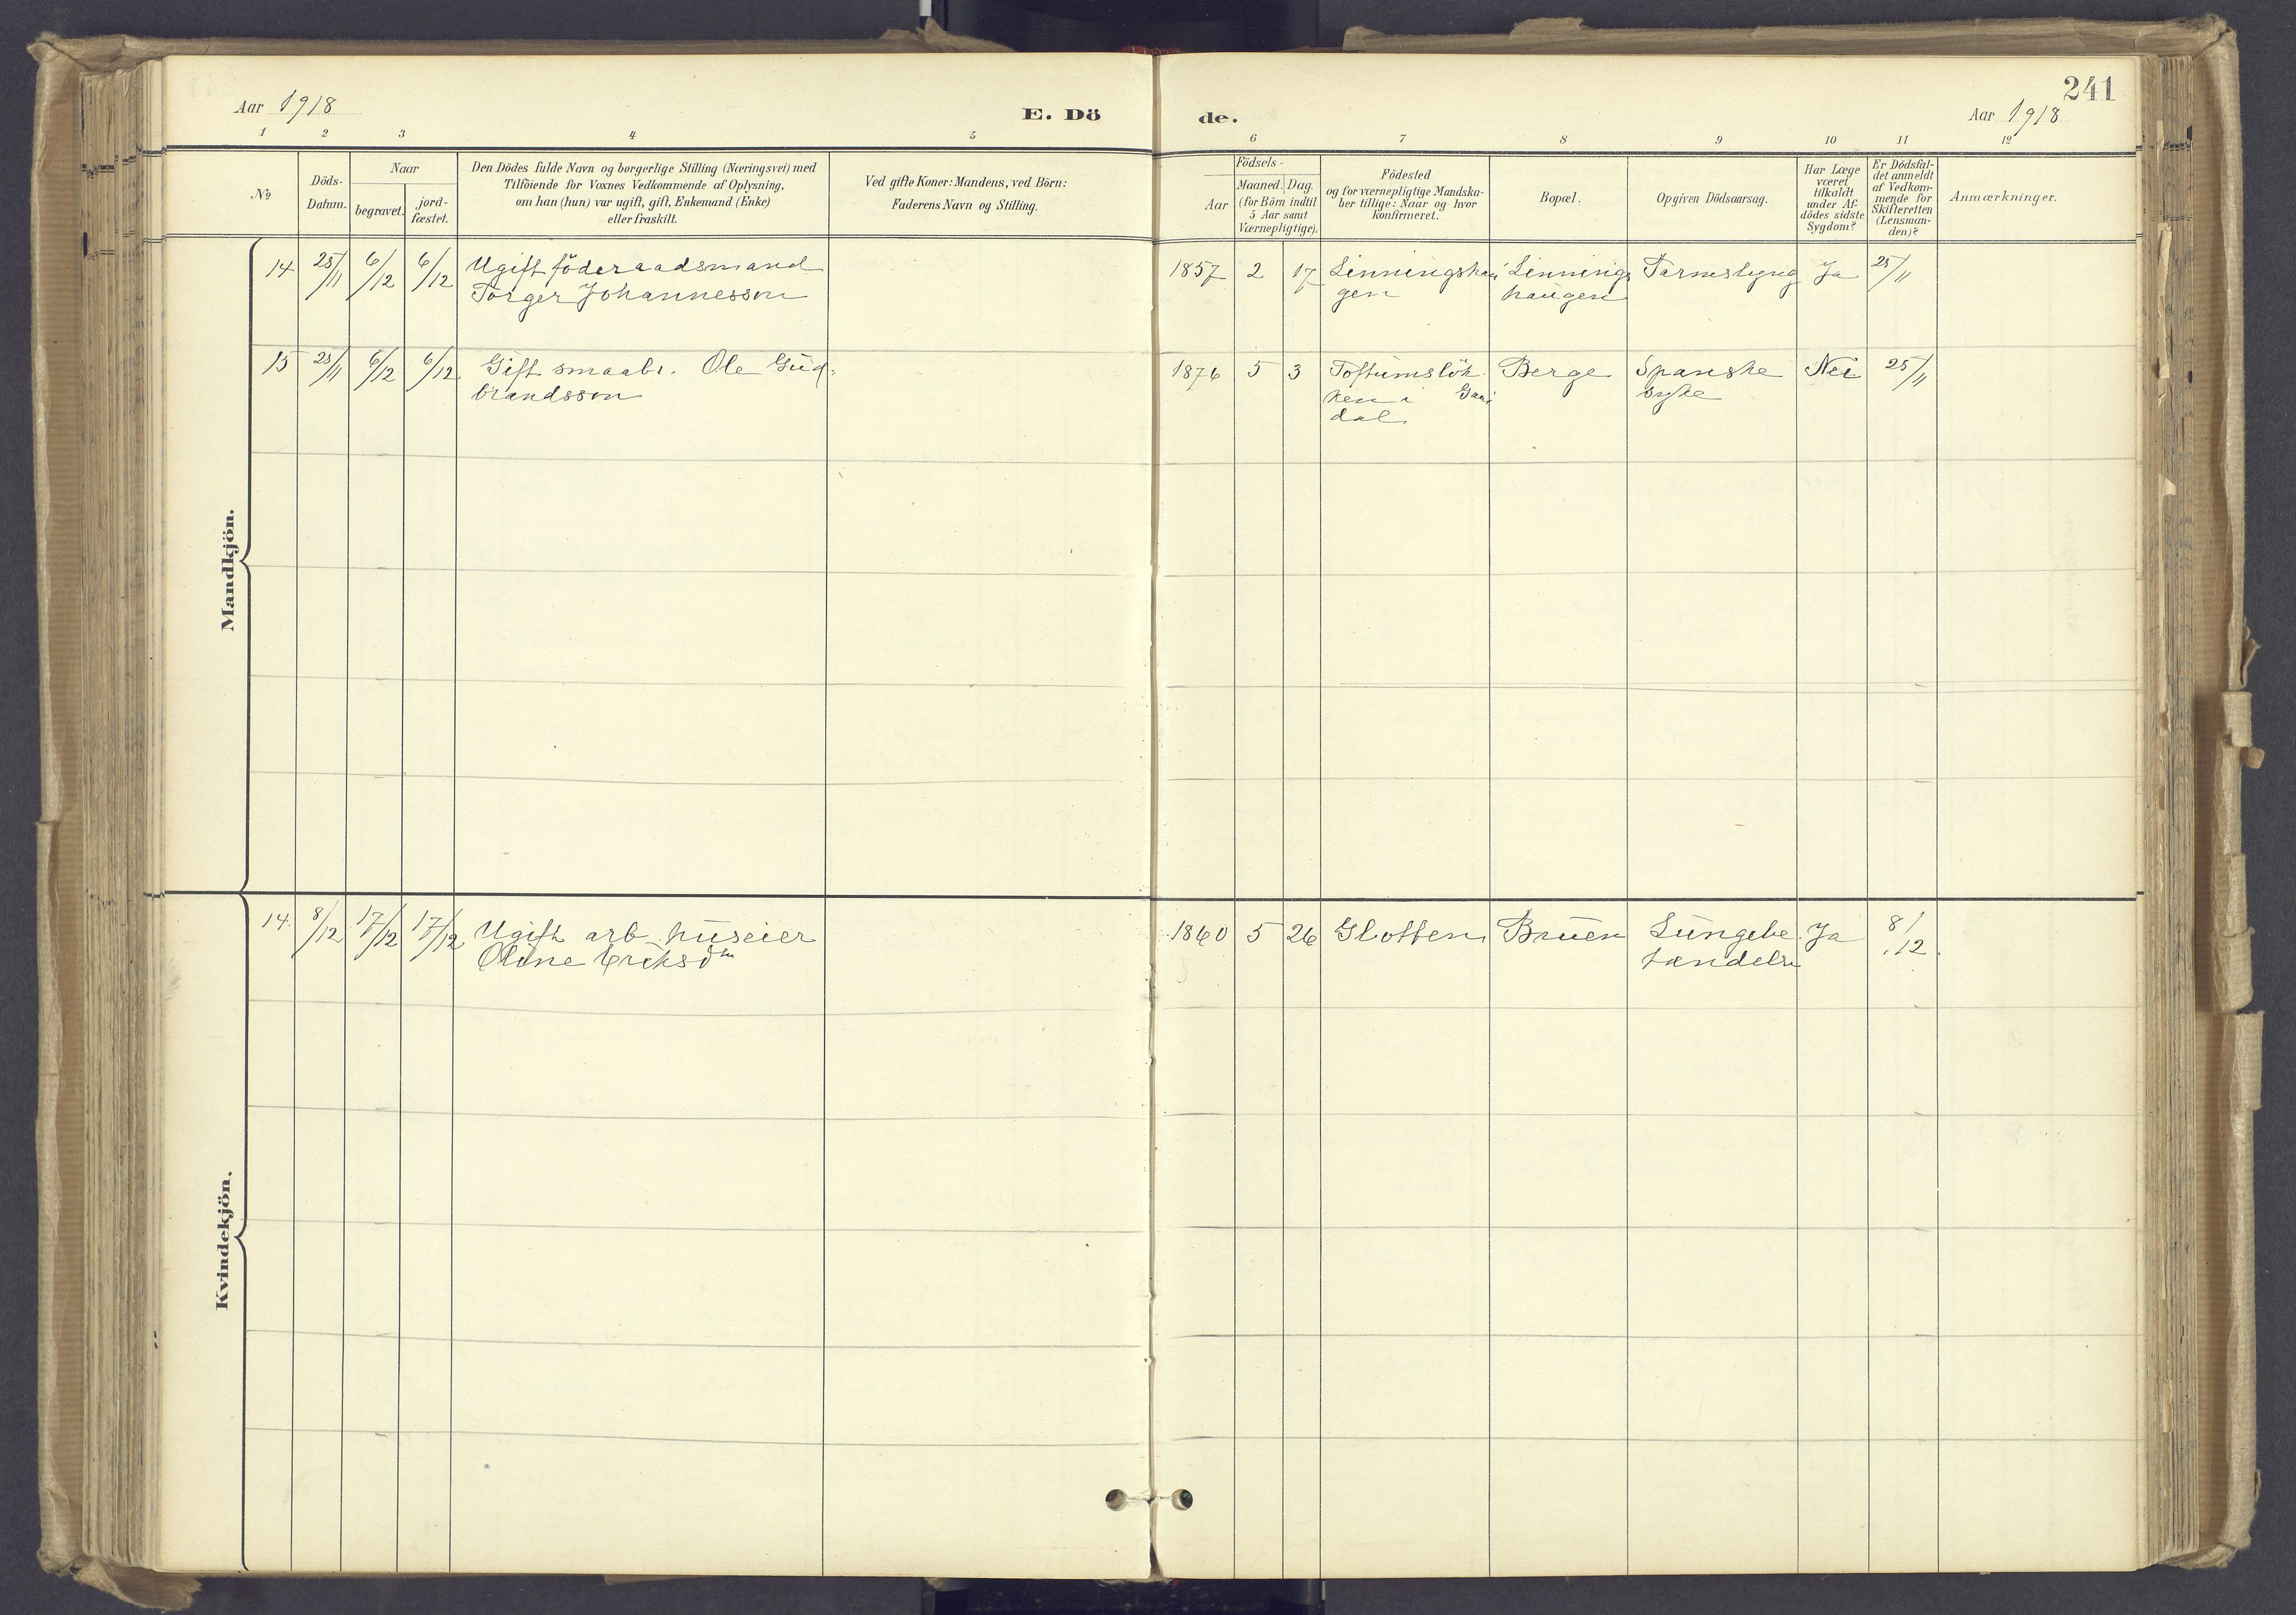 241
Aar 1918 E. Dö de. Aar 1918
1 2 3 4 5 6 7 8 9 10 11 12
№
Döds-
Datum.
Naar
begravet.
jord-
fæstet.
Den Dödes fulde Navn og borgerlige Stilling (Næringsvei) med
Tilföiende for Voxnes Vedkommende af Oplysning,
om han (hun) var ugift, gift, Enkemand (Enke)
eller fraskilt.
Ved gifte Koner: Mandens, ved Börn:
Faderens Navn og Stilling.
Födsels-
Aar
Maaned. Dag.
(for Börn indtil
5 Aar samt
Værnepligtige).
Födested
og for værnepligtige Mandska-
ber tillige: Naar og hvor
konfirmeret.
Bopæl.
Opgiven Dödsaarsag.
Har Læge
været
tilkaldt
under Af-
dödes sidste
Sygdom?
Er Dödsfal-
det anmeldt
af Vedkom-
mende for
Skifteretten
(Lensman-
den)?
Anmærkninger.
Mandkjön.
14 25/11 6/12 6/12 Ugift föderaadsmand
Torger Johannesson
1857 2 17 Linningshau
gen
Linnings
haugen
Tarmslyng Ja 25/11
15 25/11 6/12 6/12 Gift smaabr. Ole Gud-
brandsson
1876 5 3 Toftumslök
ken i
dal
Berge Spanske
syke
Nei 25/11
Kvindekjön.
14. 8/12 17/12 17/12 Ugift arb. huseier
Oline Eriksdtr
1860 5 26 Glotten Bruen Lungebe
tændelse
Ja 8/12.